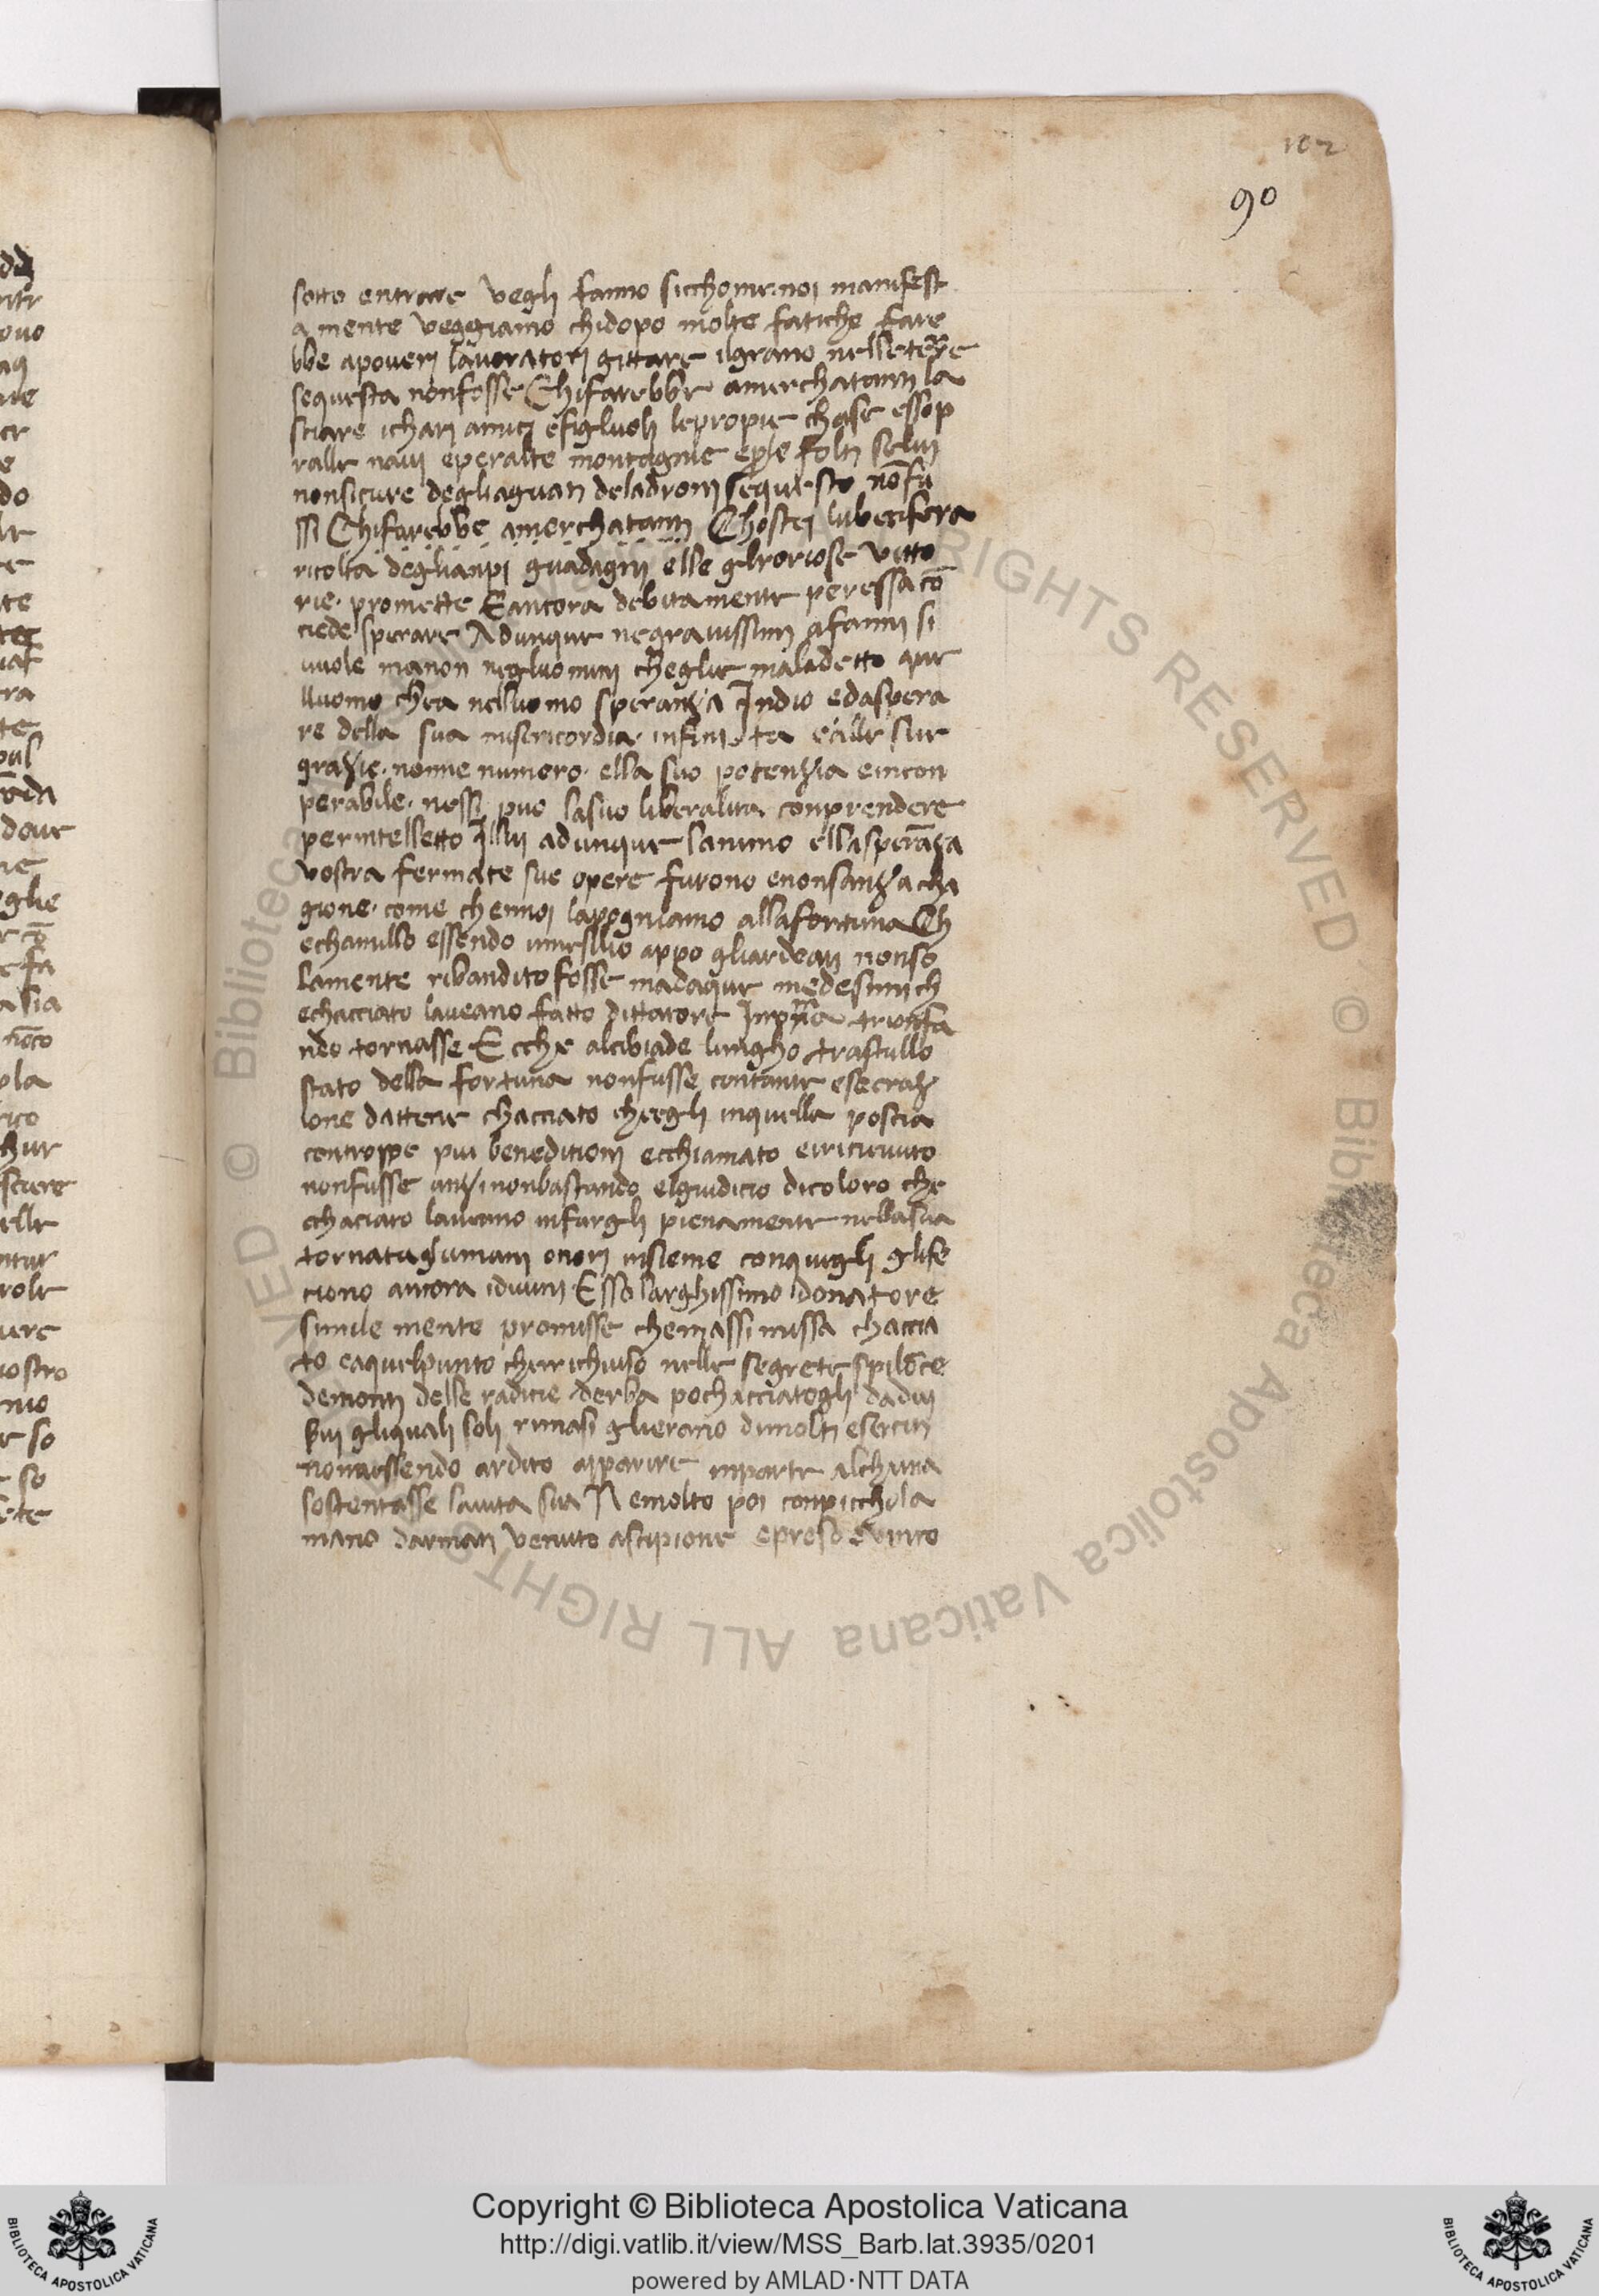 102
90
sotto entrare vegli fanno sicchome noi manifest
a mente veggiamo chidopo molte fatiche fare
bbe apoveri lavoratori gittare ilgrano nelleterre
sequesta nonfosse Chifarebbe amerchatanti la
sciare ichari amici efigluoli lepropie chase essop
ralle navi eperalte montagnie eple folti selvi
nonsicure degliaguati deladroni sequesto nōfu
ssi Chifarebbe amerchatanti Chostei lubetifera
ricolta deglianpi guadagni elle glroriose vitto
rie promette Eancora debitamente peressa cō
ciede sperare Adunque negravissimi afanni si
vuole manon negluomini cheglie maladetto que
lluomo chea nelluomo speranza Indio edaspera
re della sua misericordia infinita eālle sue
grazie nonne numero ella suo potenzia eincon
perabile nessi puo lasuo liberalita conprendere
perintelletto Illui adunque lanimo ellasperāza
vostra fermate sue opere furono enonsanza cha
gione come chennoi lapogniamo allafortuna Ch
echamillo essendo inesilio appo gliardeati nonso
lamente ribandito fosse madaque medesimi ch
echacciato laveano fatto dittatore Inpma trionfā
ndo tornasse E cche alcibiade lungho trastullo
stato della fortuna nonfusse contante esecraz
ione dattene chacciato chegli inquella poscia
controppe piu beneditioni ecchiamato ericievuto
nonfusse anzi nonbastando elgiudicio dicoloro che
cchaciato lavenno infargli pienamente nellasua
tornata glumani onori insieme conquegli glife
ciono ancora idivini Esso larghissimo donatore
simile mente promisse chemassinissa chaccia
to eaquelpunto cherichiuso nelle segrete spilōce
demonti delle radicie derba pochacciatogli dadui
svi gliquali soli rimasi glierano dimolti eserciti
nonnessendo ardito apparire inparte alchuna
sostentasse lavita sua N emolto poi conpicchola
mano darmati venuto ascipione epreso evinto
Copyright © Biblioteca Apostolica Vaticana
http://digi.vatlib.it/view/MSS_Barb.lat.3935/0201
powered by AMLAD·NTT DATA
BIBLIOTECA APOSTOLICA VATICANA
BIBLIOTECA APOSTOLICA VATICANA
© Biblioteca Apostolica Vaticana ALL RIGHTS RESERVED